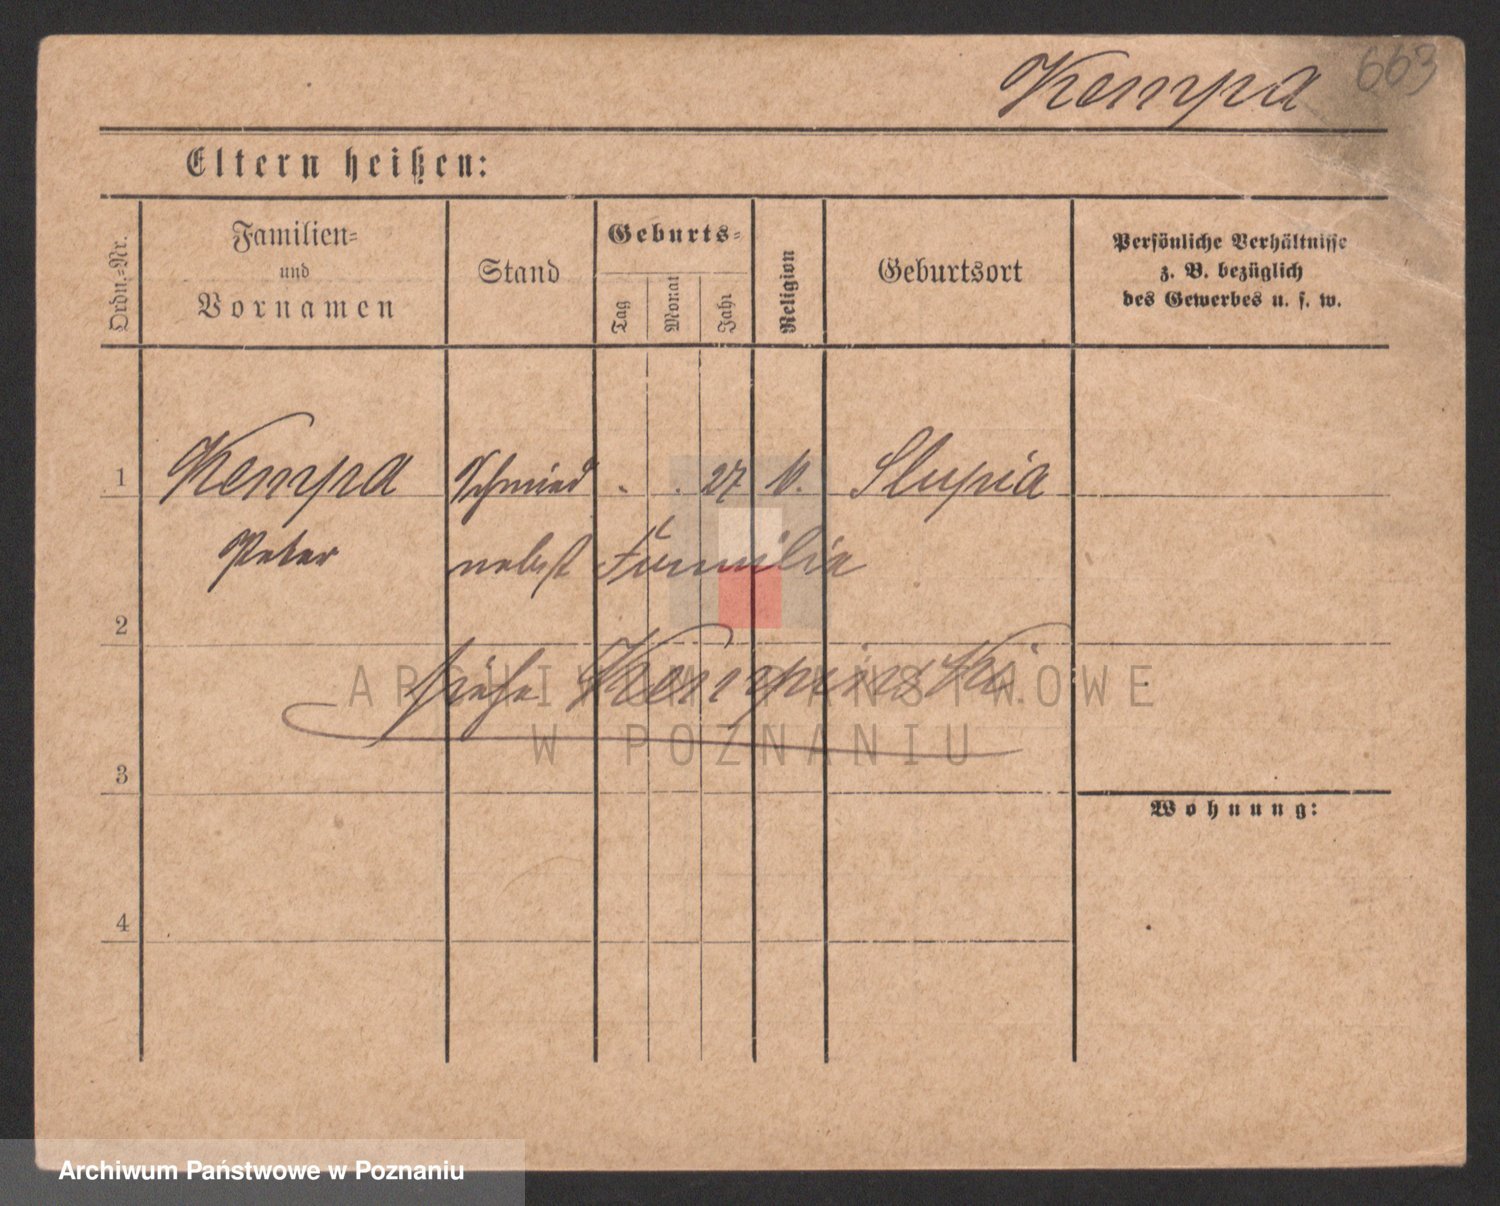 Kempa 663
Eltern heißen:
Ordn.-Nr.
Familien-
und
Vornamen
Stand
Geburts-
Tag
Monat
Jahr
Religion
Geburtsort
Persönliche Verhältnisse
z. B. bezüglich
des Gewerbes u. s. w.
1 Kempa Schmied . . 27 k. Slupia
Peter nebst Familie
2
siehe Kempinski.
ARCHIWUM PAŃSTWOWE
W POZNANIU
3
Wohnung:
4
Archiwum Państwowe w Poznaniu